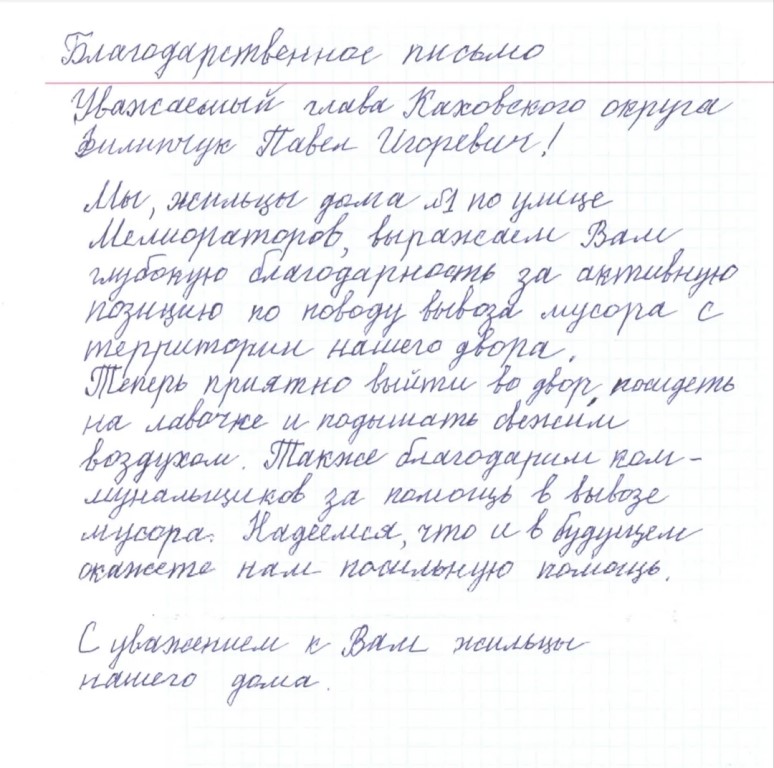 Благодарственное письмо
Уважаемый глава Каховского округа
Филипчук Павел Игоревич!
Мы, жильцы дома №1 по улице
Мелиораторов, выражаем Вам
глубокую благодарность за активную
позицию по поводу вывоза мусора с
территории нашего двора.
Теперь приятно выйти во двор, посидеть
на лавочке и подышать свежим
воздухом. Также благодарим ком-
мунальщиков за помощь в вывозе
мусора. Надеемся, что и в будущем
окажете нам посильную помощь.
С уважением к Вам жильцы
нашего дома.